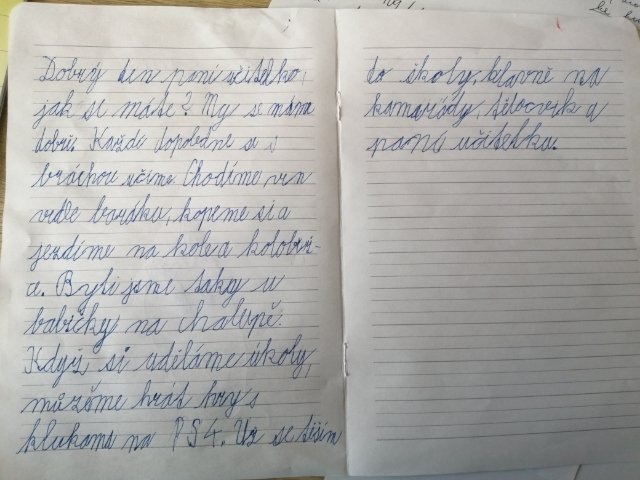 Dobrý den paní učitelko,
jak se máte? My se máme
dobře. Každé dopoledne se s
bráchou učíme. Chodíme ven
vedle baráku, kopeme si a
jezdíme na kole a koloběž-
ce. Byli jsme taky u
babičky na chalupě.
Když si uděláme úkoly,
můžeme hrát hry s
klukama na PS4. Už se těším
do školy, hlavně na
kamarády, tělocvik a
paní učitelku.